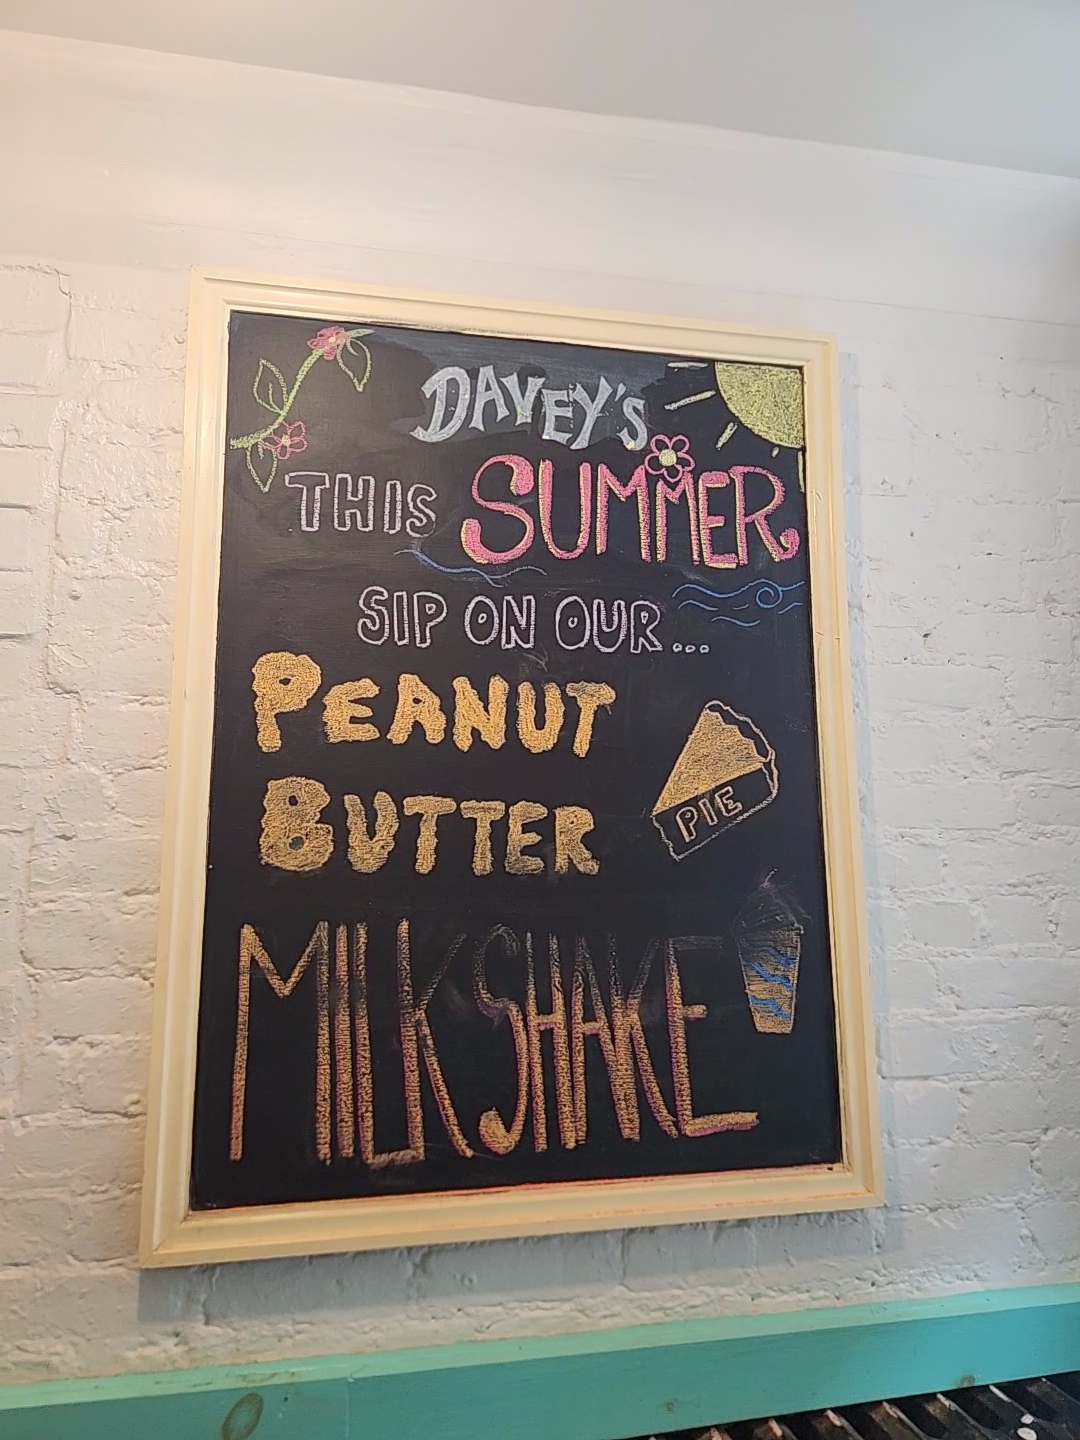 DAVEY'S
THIS SUMMER
SIP ON OUR...
PEANUT
BUTTER
PIE
MILKSHAKE